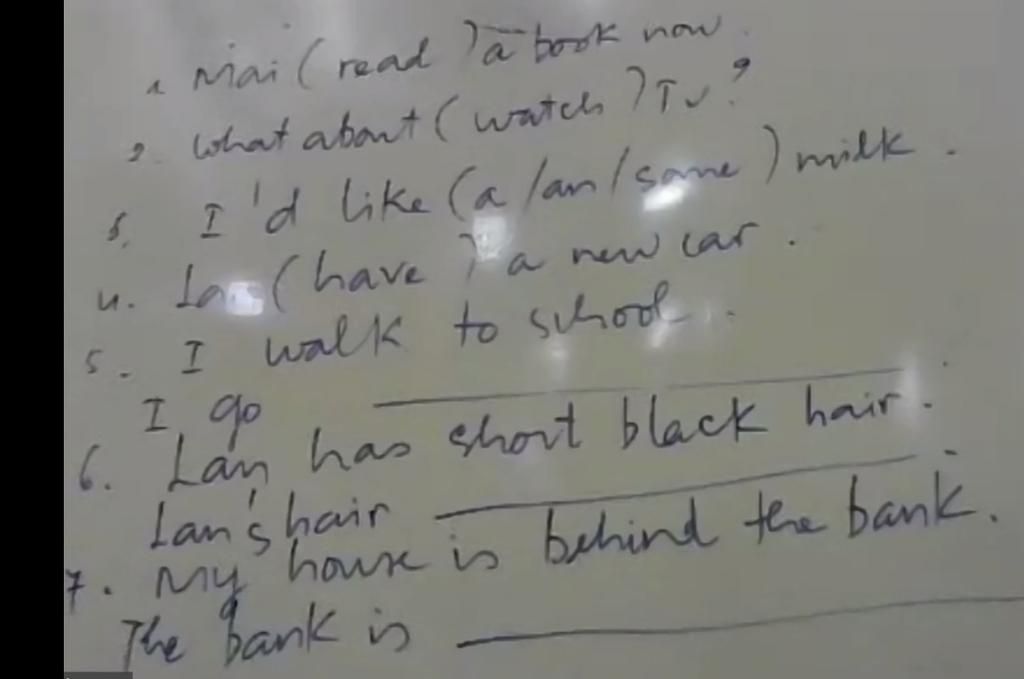 1. Mai ( read ) a book now.
2. What about ( watch ) TV ?
3. I'd like ( a / an / some ) milk .
4. Lan ( have ) a new car .
5. I walk to school .
I go __________ .
6. Lan has short black hair .
Lan's hair __________ .
7. My house is behind the bank .
The bank is __________